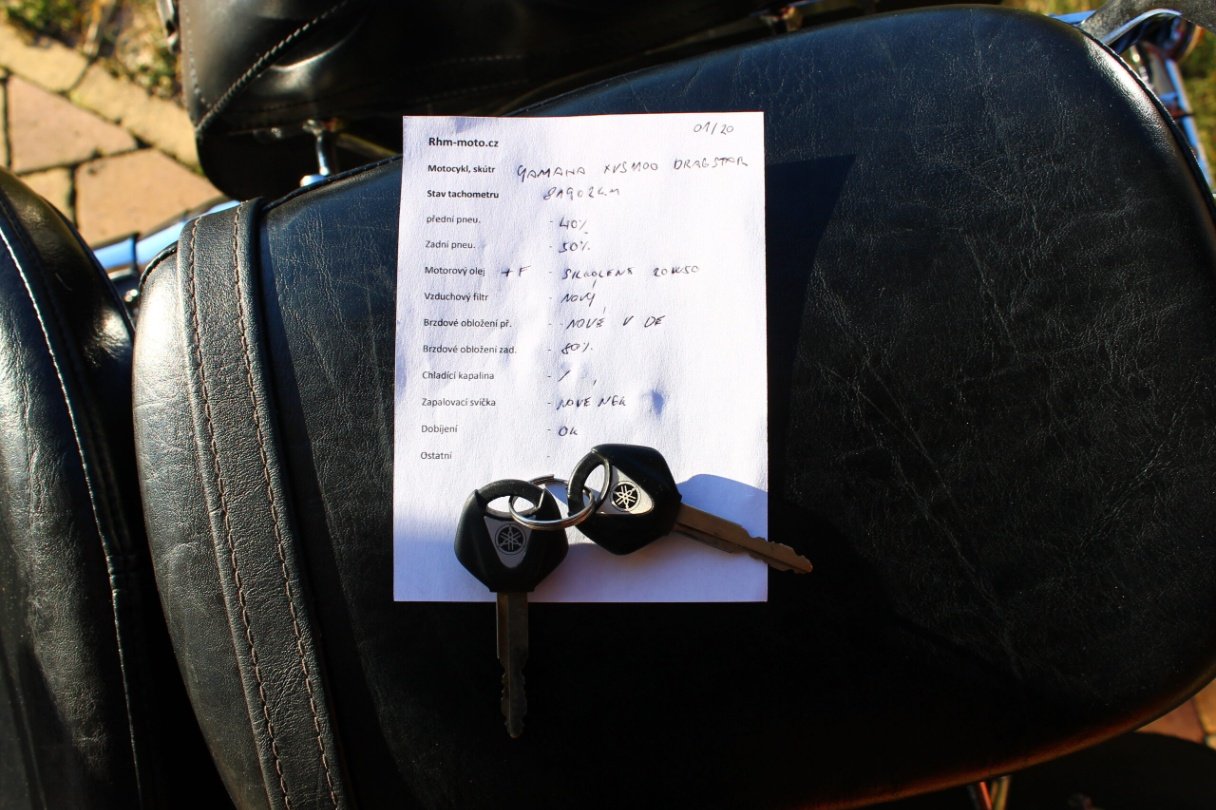 01/20
Rhm-moto.cz
Motocykl, skútr YAMAHA XVS1100 DRAGSTAR
Stav tachometru
přední pneu. - 40%
Zadní pneu. - 50%
Motorový olej + F - 20W50
Vzduchový filtr - NOVÝ
Brzdové obložení př. - NOVÉ V DE
Brzdové obložení zad. - 80%
Chladící kapalina - /
Zapalovací svíčka - NOVÉ NGK
Dobíjení - OK
Ostatní -